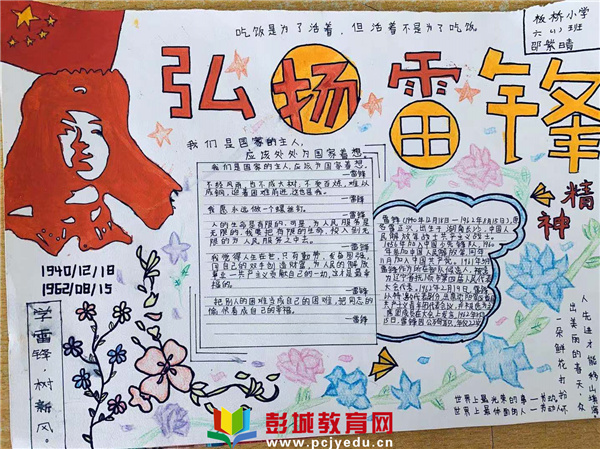 吃饭是为了活着，但活着不是为了吃饭。
板桥小学
六(1)班
邵紫晴
弘扬雷锋
精神
我们是国家的主人，
应该处处为国家着想。
我们是国家的主人，应该为国家着想。
—雷锋
不经风雨，长不成大树，不受百炼，难以
成钢。迎着困难前进，这也是我。
—雷锋
我愿永远做一个螺丝钉。
—雷锋
人的生命是有限的，可是，为人民服务是
无限的，我要把有限的生命，投入到无
限的为人民服务之中去。
—雷锋
我觉得人生在世，只有勤劳，发奋图强，
用自己的双手创造财富，为人民的解放
事业—共产主义贡献自己的一切，这才是最幸
福的。
—雷锋
把别人的困难当成自己的困难，把同志的
愉快看成自己的幸福。
—雷锋
雷锋(1940年12月18日—1962年8月15日)，原
名雷正兴，出生于湖南长沙，中国人
民解放军战士、共产主义战士。
1940/12/18
1962/08/15
学雷锋，树新风。
一朵鲜花打扮不
出美丽的春天，众
人先进才能移山填海。
世界上最光荣的事—劳动。
世界上最体面的人—劳动人
彭城教育网
www.pcjyedu.cn